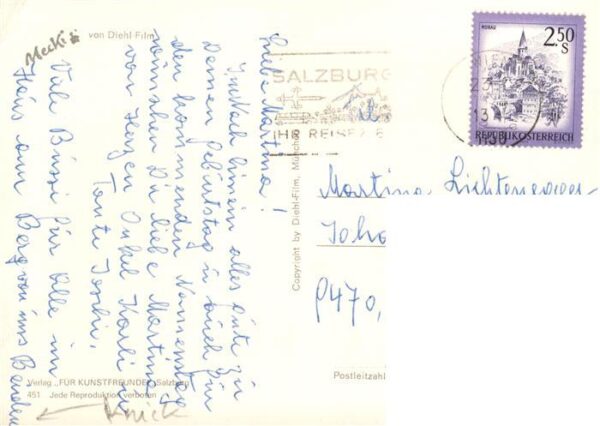 Meckis von Diehl Film
Liebe Martina!
Innkah hinein alles Gute zu
Deinen Geburtstag u auch für
den kommenden Namenstag
wünschen Dir liebe Martina
von Herzen Onkel Karli u
Tante Joshi.
Viele Bussi für Alle im
Haus am Berg von uns Beiden
Verlag „FÜR KUNSTFREUNDE" Salzburg
451 Jede Reproduktion verboten
Knick
Copyright by Diehl-Film, München
SALZBURG
IHR REISEZIE
MURAU
2.50
S
REPUBLIK ÖSTERREICH
1130
Martina
Joha
9470,
Postleitzahl